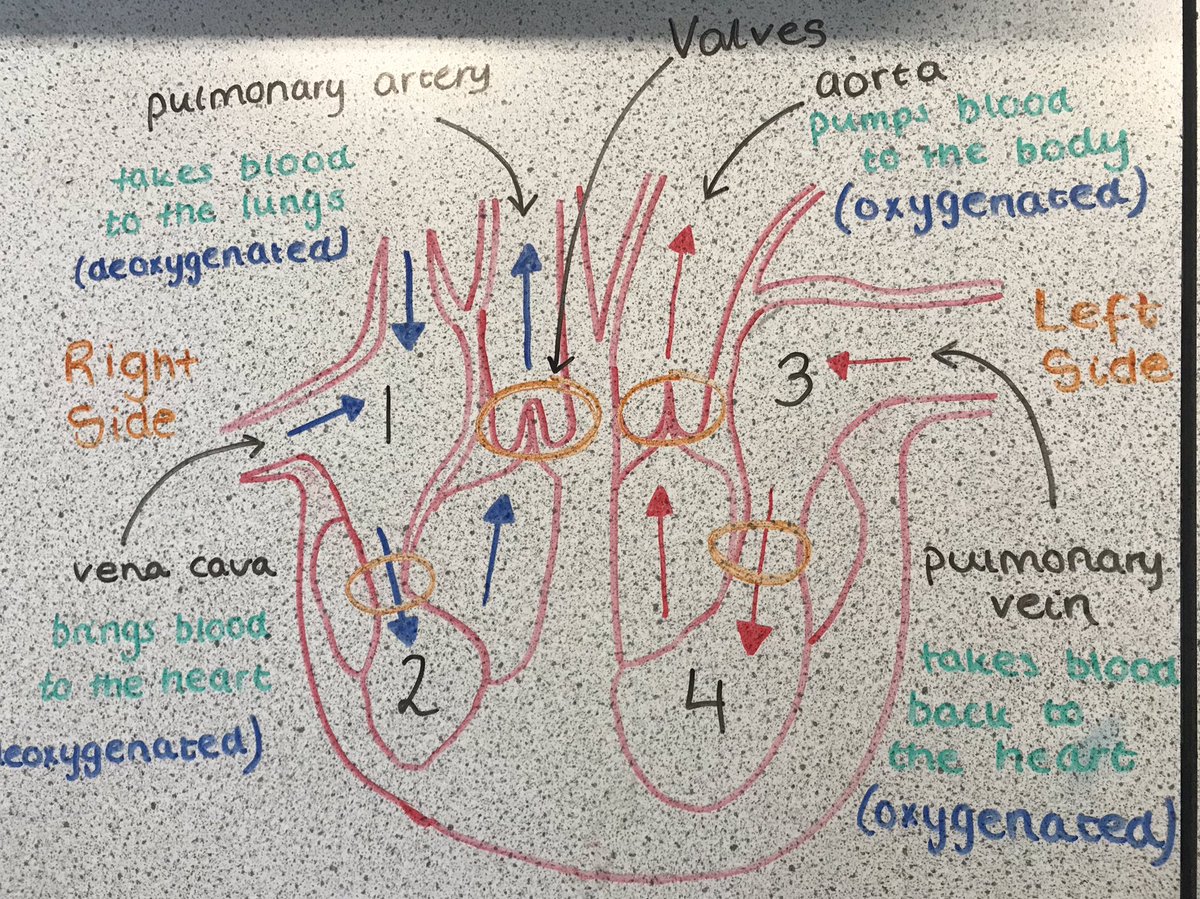 Valves
pulmonary artery
takes blood
to the lungs
(deoxygenated)
aorta
pumps blood
to the body
(oxygenated)
Right
Side
Left
Side
1
3
vena cava
brings blood
to the heart
deoxygenated)
2
4
pulmonary
vein
takes blood
back to
the heart
(oxygenated)